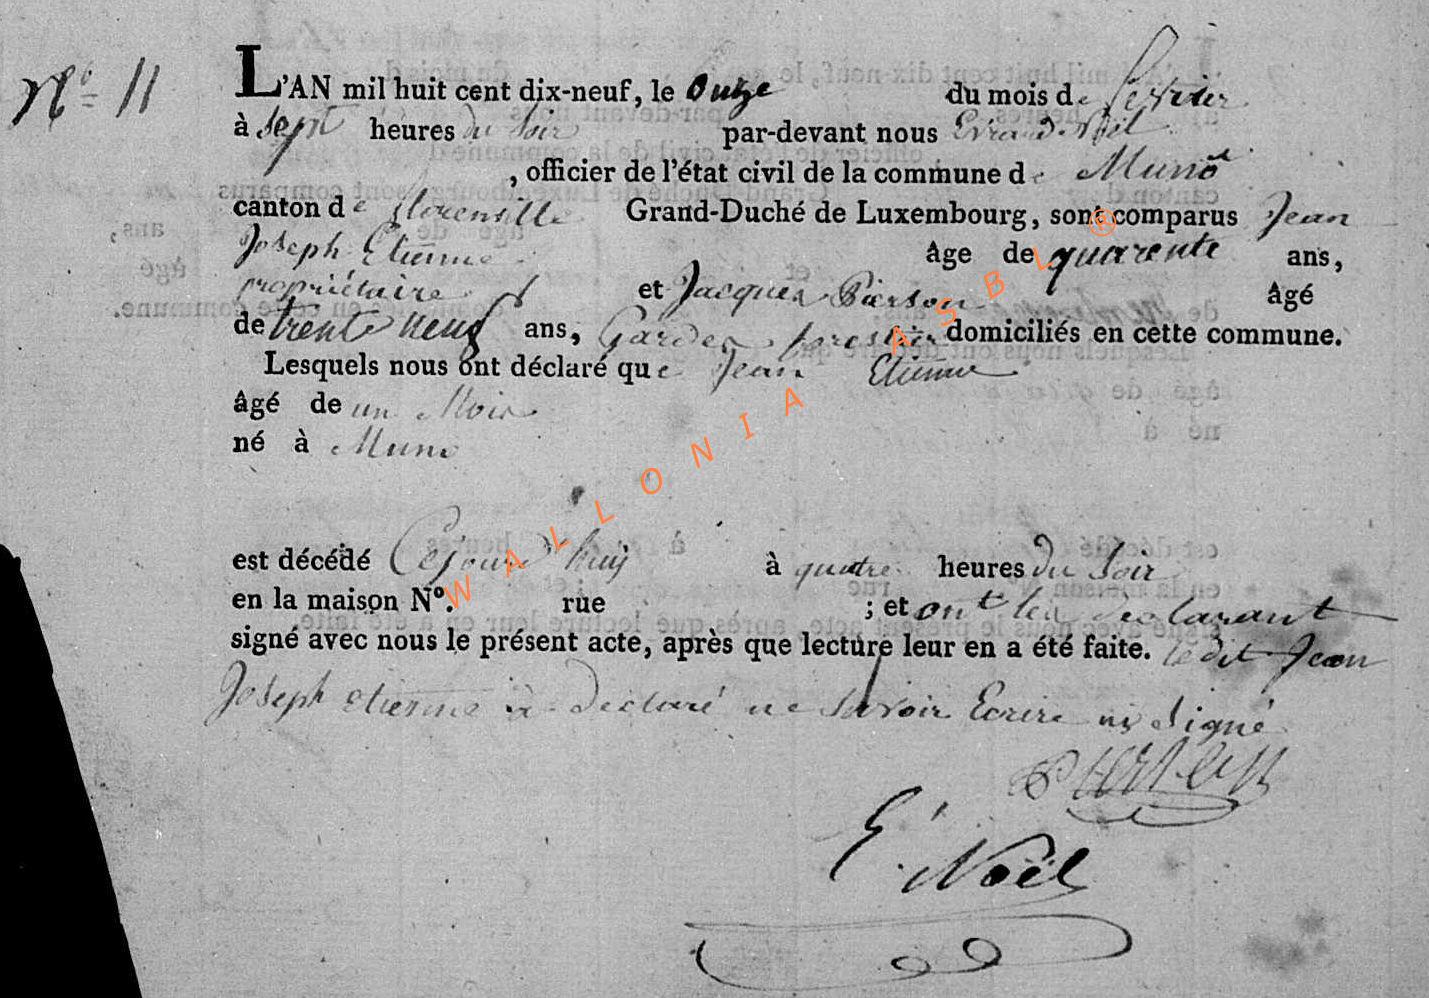 N° 11
L'AN mil huit cent dix-neuf, le onze du mois de fevrier
à sept heures du soir par-devant nous Evrard Noël
, officier de l'état civil de la commune de Muno
canton de florenville Grand-Duché de Luxembourg, sont comparus Jean
Joseph Etienne âge de quarente ans,
propriétaire et Jacques Pierson âgé
de trente neuf ans, Garde forestier domiciliés en cette commune.
Lesquels nous ont déclaré que Jean Etienne
âgé de un Mois
né à Muno
est décédé Cejourd'huy à quatre heures du soir
en la maison N°. rue ; et ont les declarant
signé avec nous le présent acte, après que lecture leur en a été faite. ledit Jean
Joseph etienne à declaré ne savoir Ecrire ny signé
Pierson
E. Noël
WALLONIA ASBL ®